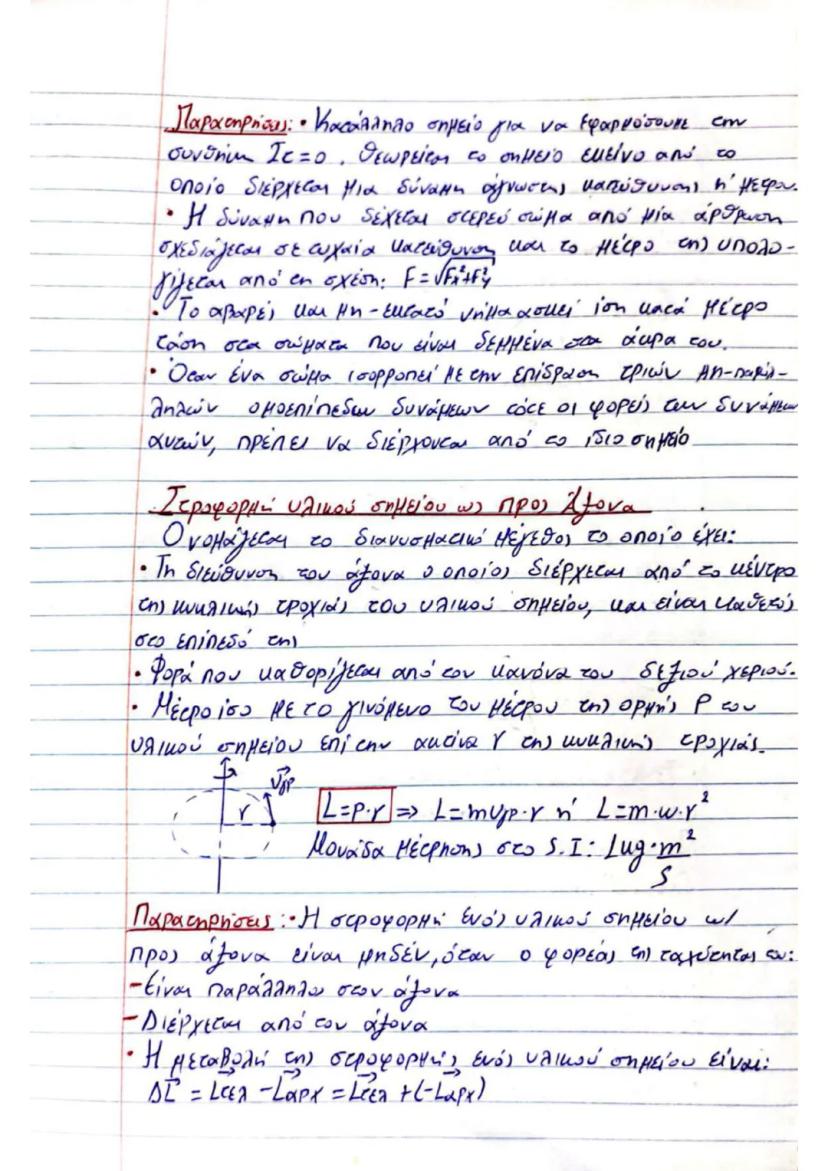 Παρατηρήσεις: • Κατάλληλο σημείο για να εφαρμόσουμε την
συνθήκη Στ=0. Θεωρείται το σημείο εκείνο από το
οποίο διέρχεται μια δύναμη άγνωστης κατεύθυνσης ή μέτρου.
• Η δύναμη που δέχεται στερεό σώμα από μία άρθρωση
σχεδιάζεται σε τυχαία κατεύθυνση και το μέτρο της υπολο-
γίζεται από τη σχέση: F=√Fx²+Fy²
• Το αβαρές και μη-εκτατό νήμα ασκεί ίση κατά μέτρο
τάση στα σώματα που είναι δεμμένα στα άκρα του.
• Όταν ένα σώμα ισορροπεί με την επίδραση τριών μη-παράλ-
ληλων ομοεπίπεδων δυνάμεων τότε οι φορείς των δυνάμεων
αυτών, πρέπει να διέρχονται από το ίδιο σημείο
Στροφορμή υλικού σημείου ως προς Άξονα
Ονομάζεται το διανυσματικό μέγεθος το οποίο έχει:
• Τη διεύθυνση του άξονα ο οποίος διέρχεται από το κέντρο
της κυκλικής τροχιάς του υλικού σημείου, και είναι κάθετος
στο επίπεδό της
• Φορά που καθορίζεται από τον κανόνα του δεξιού χεριού.
• Μέτρο ίσο με το γινόμενο του μέτρου της ορμής P του
υλικού σημείου επί την ακτίνα r της κυκλικής τροχιάς.
r υγρ L=p·r ⇒ L=mυγρ·r ή L=m·ω·r²
Μονάδα μέτρησης στο S.I: 1kg·m²/s
Παρατηρήσεις: • Η στροφορμή ενός υλικού σημείου ως
προς άξονα είναι μηδέν, όταν ο φορέας της ταχύτητας του:
-Είναι παράλληλος στον άξονα
-Διέρχεται από τον άξονα
• Η μεταβολή της στροφορμής ενός υλικού σημείου είναι:
ΔL = Lτελ - Lαρχ = Lτελ + (-Lαρχ)